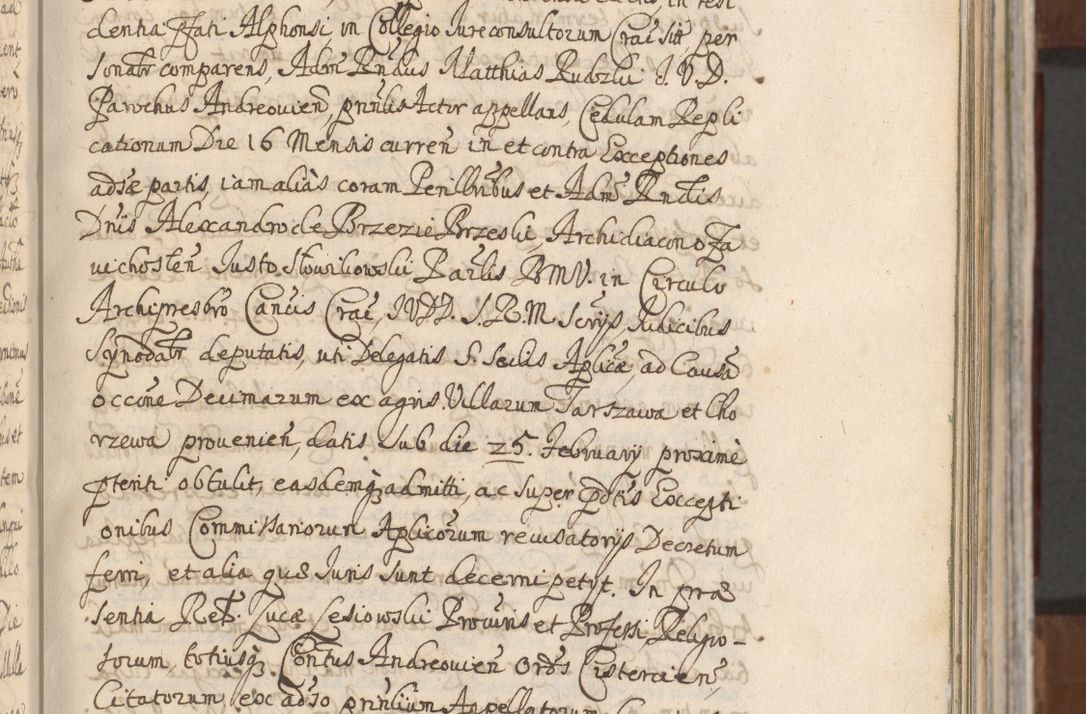 dentia Pfati Alphonsi in Collegio Iureconsultorum Crac. sitt per
sonalr comparens, Adm Rndus Matthias Rudzki I. V. D.
Parochus Andreouien, prinlis Actor appellans, Cedulam Repli
cationum Die 16 Mensis curren in et contra Exceptiones
adsæ partis, iam aliàs coram Perillbribus et Adm Rndis
Dnis Alexandro de Brzezie Brzeski, Archidiacono Za
uichosten Iusto Słowikowski Barlis BMV. in Circulo
Archipresbro Cancis Crac, IVDD. S. R. M Scrijs, Iudicibus
Synodalr deputatis, uti Delegatis S. Sedis Aplicæ, ad Causā
occõne Decimarum ex agris Villarum Tarszawa et Cho
rzewa prouenien, datis sub die 25. February proximè
pteriti obtulit, easdemq admitti, ac super pdtis Excepti
onibus Commissariorum Aplicorum recusatorijs Decretum
ferri, et alia quæ Iuris sunt decerni petijt. In præ
sentia Rel. Lucæ Lesiowski Prouinis et Professi, Religio-
sorum, totiusq Conntus Andreouien Ordis Cistercien,
Citatorum, ex adso prinlium Appellatorum